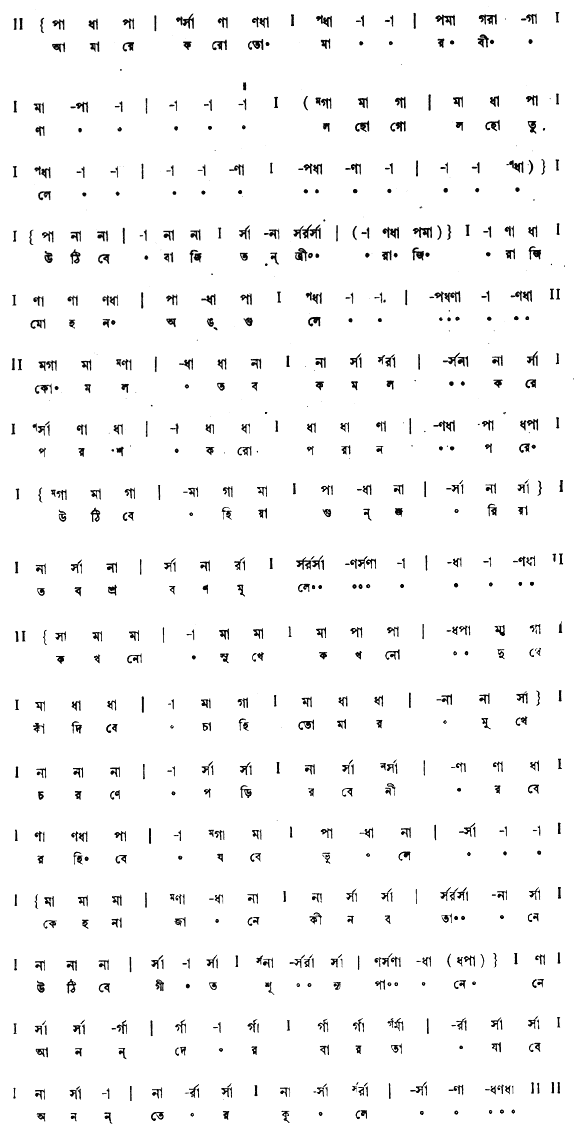 II { পা ধা পা | র্সর্সা ণা ণধা I পধা -া -া | পমা গরা -গা I
আ মা রে ক রো তো॰ মা ॰ ॰ র॰ বী॰ ॰
I মা -পা -া | -া -া -া I ( মগা মা গা | মা ধা পা I
ণা ॰ ॰ ॰ ॰ ॰ ল হো গো ল হো তু
I পধা -া -া | -া -া -ণা I -পধা -ণা -া | -া -া -ণধা ) } I
লে ॰ ॰ ॰ ॰ ॰ ॰॰ ॰ ॰ ॰ ॰ ॰
I { পা না না | -া না না I র্সা -না র্সর্রর্সা | (-া ণধা পমা) } I -া ণা ধা I
উ ঠি বে ॰ বা জি ত ন্ ত্রী॰॰ ॰ রা॰ জি॰ ॰ রা জি
I ণা ণা ণধা | পা -ধা পা I পধা -া -া | -পধণা -া -ণধা II
মো হ ন॰ অ ঙ্ গু লে ॰ ॰ ॰॰॰ ॰ ॰॰
II মগা মা মণা | -ধা ধা না I না র্সা র্সর্রা | -র্সনা না র্সা I
কো॰ ম ল ॰ ত ব ক ম ল ॰॰ ক রে
I র্সর্সা ণা ধা | -া ধা ধা I ধা ধা ণা | -ণধা পা ধপা I
প র শ ॰ ক রো প রা ন ॰॰ প রে॰
I { মগা মা গা | -মা গা মা I পা -ধা না | -র্সা না র্সা } I
উ ঠি বে ॰ হি য়া গু ন্ জ ॰ রি য়া
I না র্সা না | র্সা না র্রা I র্সর্রর্সা -ণর্সণা -া | -ধা -া -ণধা II
ত ব শ্র ব ণ মূ লে॰॰ ॰॰॰ ॰ ॰ ॰ ॰॰
II { সা মা মা | -া মা মা I মা পা পা | -ধপা মা গা I
ক খ নো ॰ সু খে ক খ নো ॰॰ দু খে
I মা ধা ধা | -া মা গা I মা ধা ধা | -না না র্সা } I
কাঁ দি বে ॰ চা হি তো মা র ॰ মু খে
I না না না | -া র্সা র্সা I না র্সা নর্সা | -ণা ণা ধা I
চ র ণে ॰ প ড়ি র বে নী ॰ র বে
I ণা ণধা পা | -া মগা মা I পা -ধা না | -র্সা -া -া I
র হি॰ বে ॰ য বে ভু ॰ লে ॰ ॰ ॰
I { মা মা মা | মণা -ধা না I না র্সা র্সা | র্সর্রর্সা -না র্সা I
কে হ না জা ॰ নে কী ন ব তা॰॰ ॰ নে
I না না না | র্সা -া র্সা I র্সনা -র্সর্রা র্সা | ণর্সণা -ধা (ধপা) } I ণা I
উ ঠি বে গী ॰ ত শূ ॰॰ ন্য পা॰॰ ॰ নে॰ নে
I র্সা র্সা -র্গা | র্গা -া র্গা I র্গা র্গা র্গর্মা | -র্রা র্সা র্সা I
আ ন ন্ দে ॰ র বা র তা ॰ যা বে
I না র্সা -া | না -র্রা র্সা I না -র্সা র্সর্রা | -র্সা -ণা -ধণধা II II
অ ন ন্ তে ॰ র কূ ॰ লে ॰ ॰ ॰॰॰